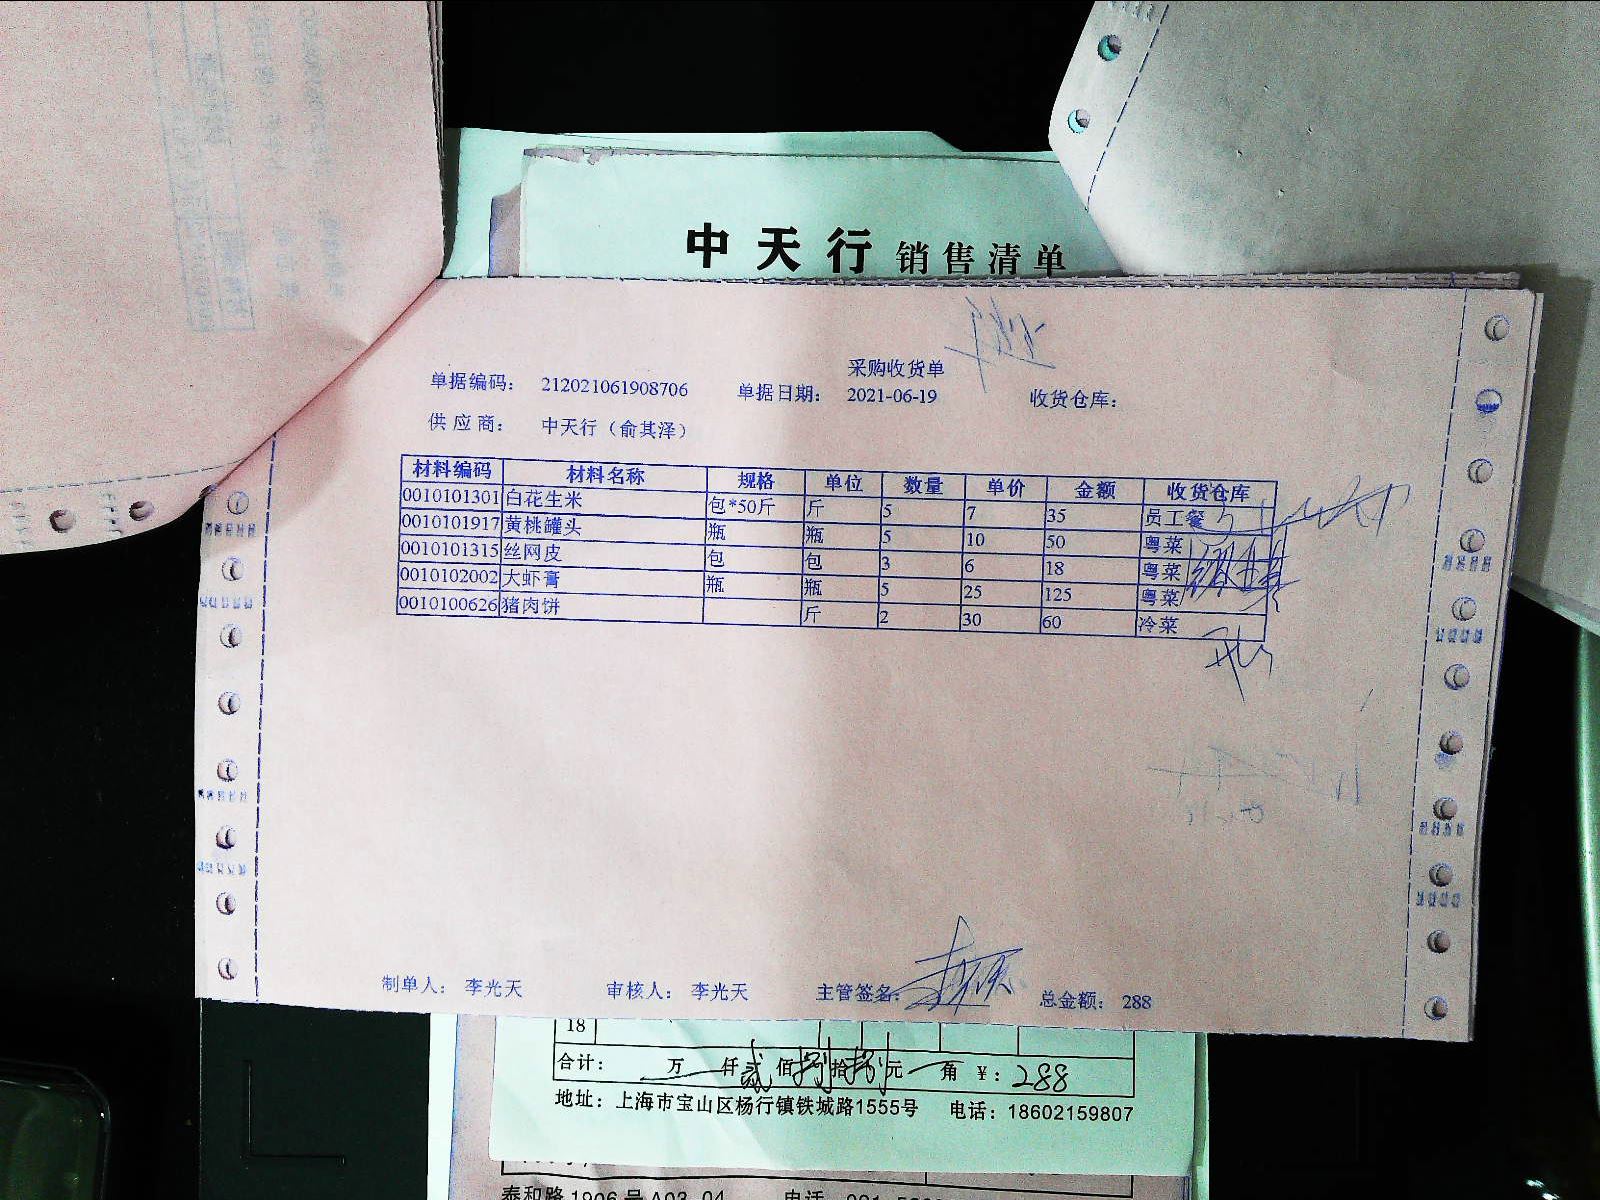 中天行 销售清单
采购收货单
单据编码： 212021061908706 单据日期： 2021-06-19 收货仓库：
供应商： 中天行（俞其泽）
材料编码 材料名称 规格 单位 数量 单价 金额 收货仓库
0010101301 白花生米 包*50斤 斤 5 7 35 员工餐
0010101917 黄桃罐头 瓶 瓶 5 10 50 粤菜
0010101315 丝网皮 包 包 3 6 18 粤菜
0010102002 大虾膏 瓶 瓶 5 25 125 粤菜
0010100626 猪肉饼 斤 2 30 60 冷菜
制单人： 李光天 审核人： 李光天 主管签名： 总金额： 288
18
合计： 万 仟 贰 佰 捌 拾 捌 元 角 ￥：288
地址：上海市宝山区杨行镇铁城路1555号 电话：18602159807
泰和路1906号A03-04 电话